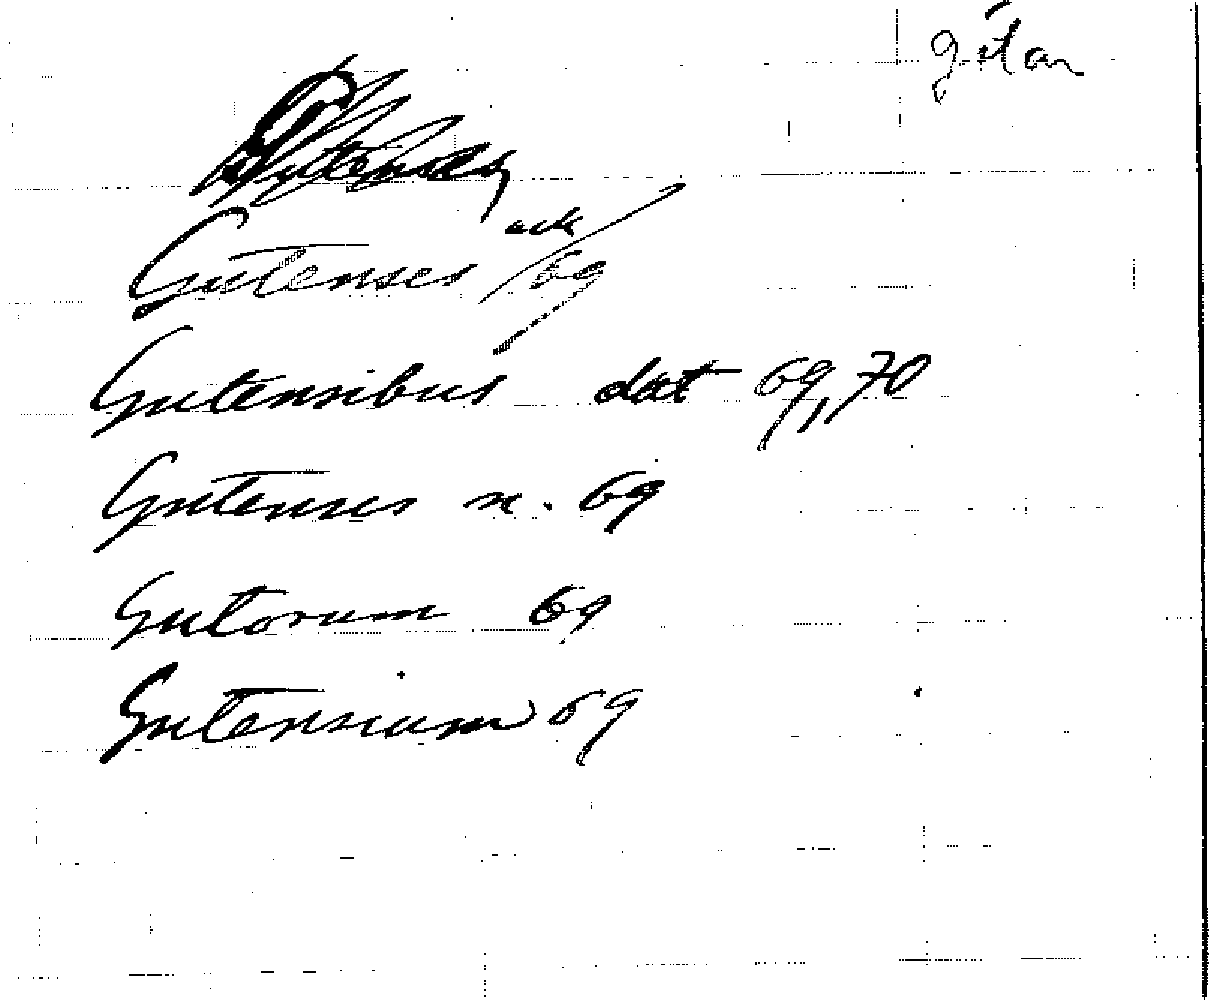 Gutenses ack 69
Gutensibus dat 69, 70
Gutenses n. 69
Gutorum 69
Gutensium 69